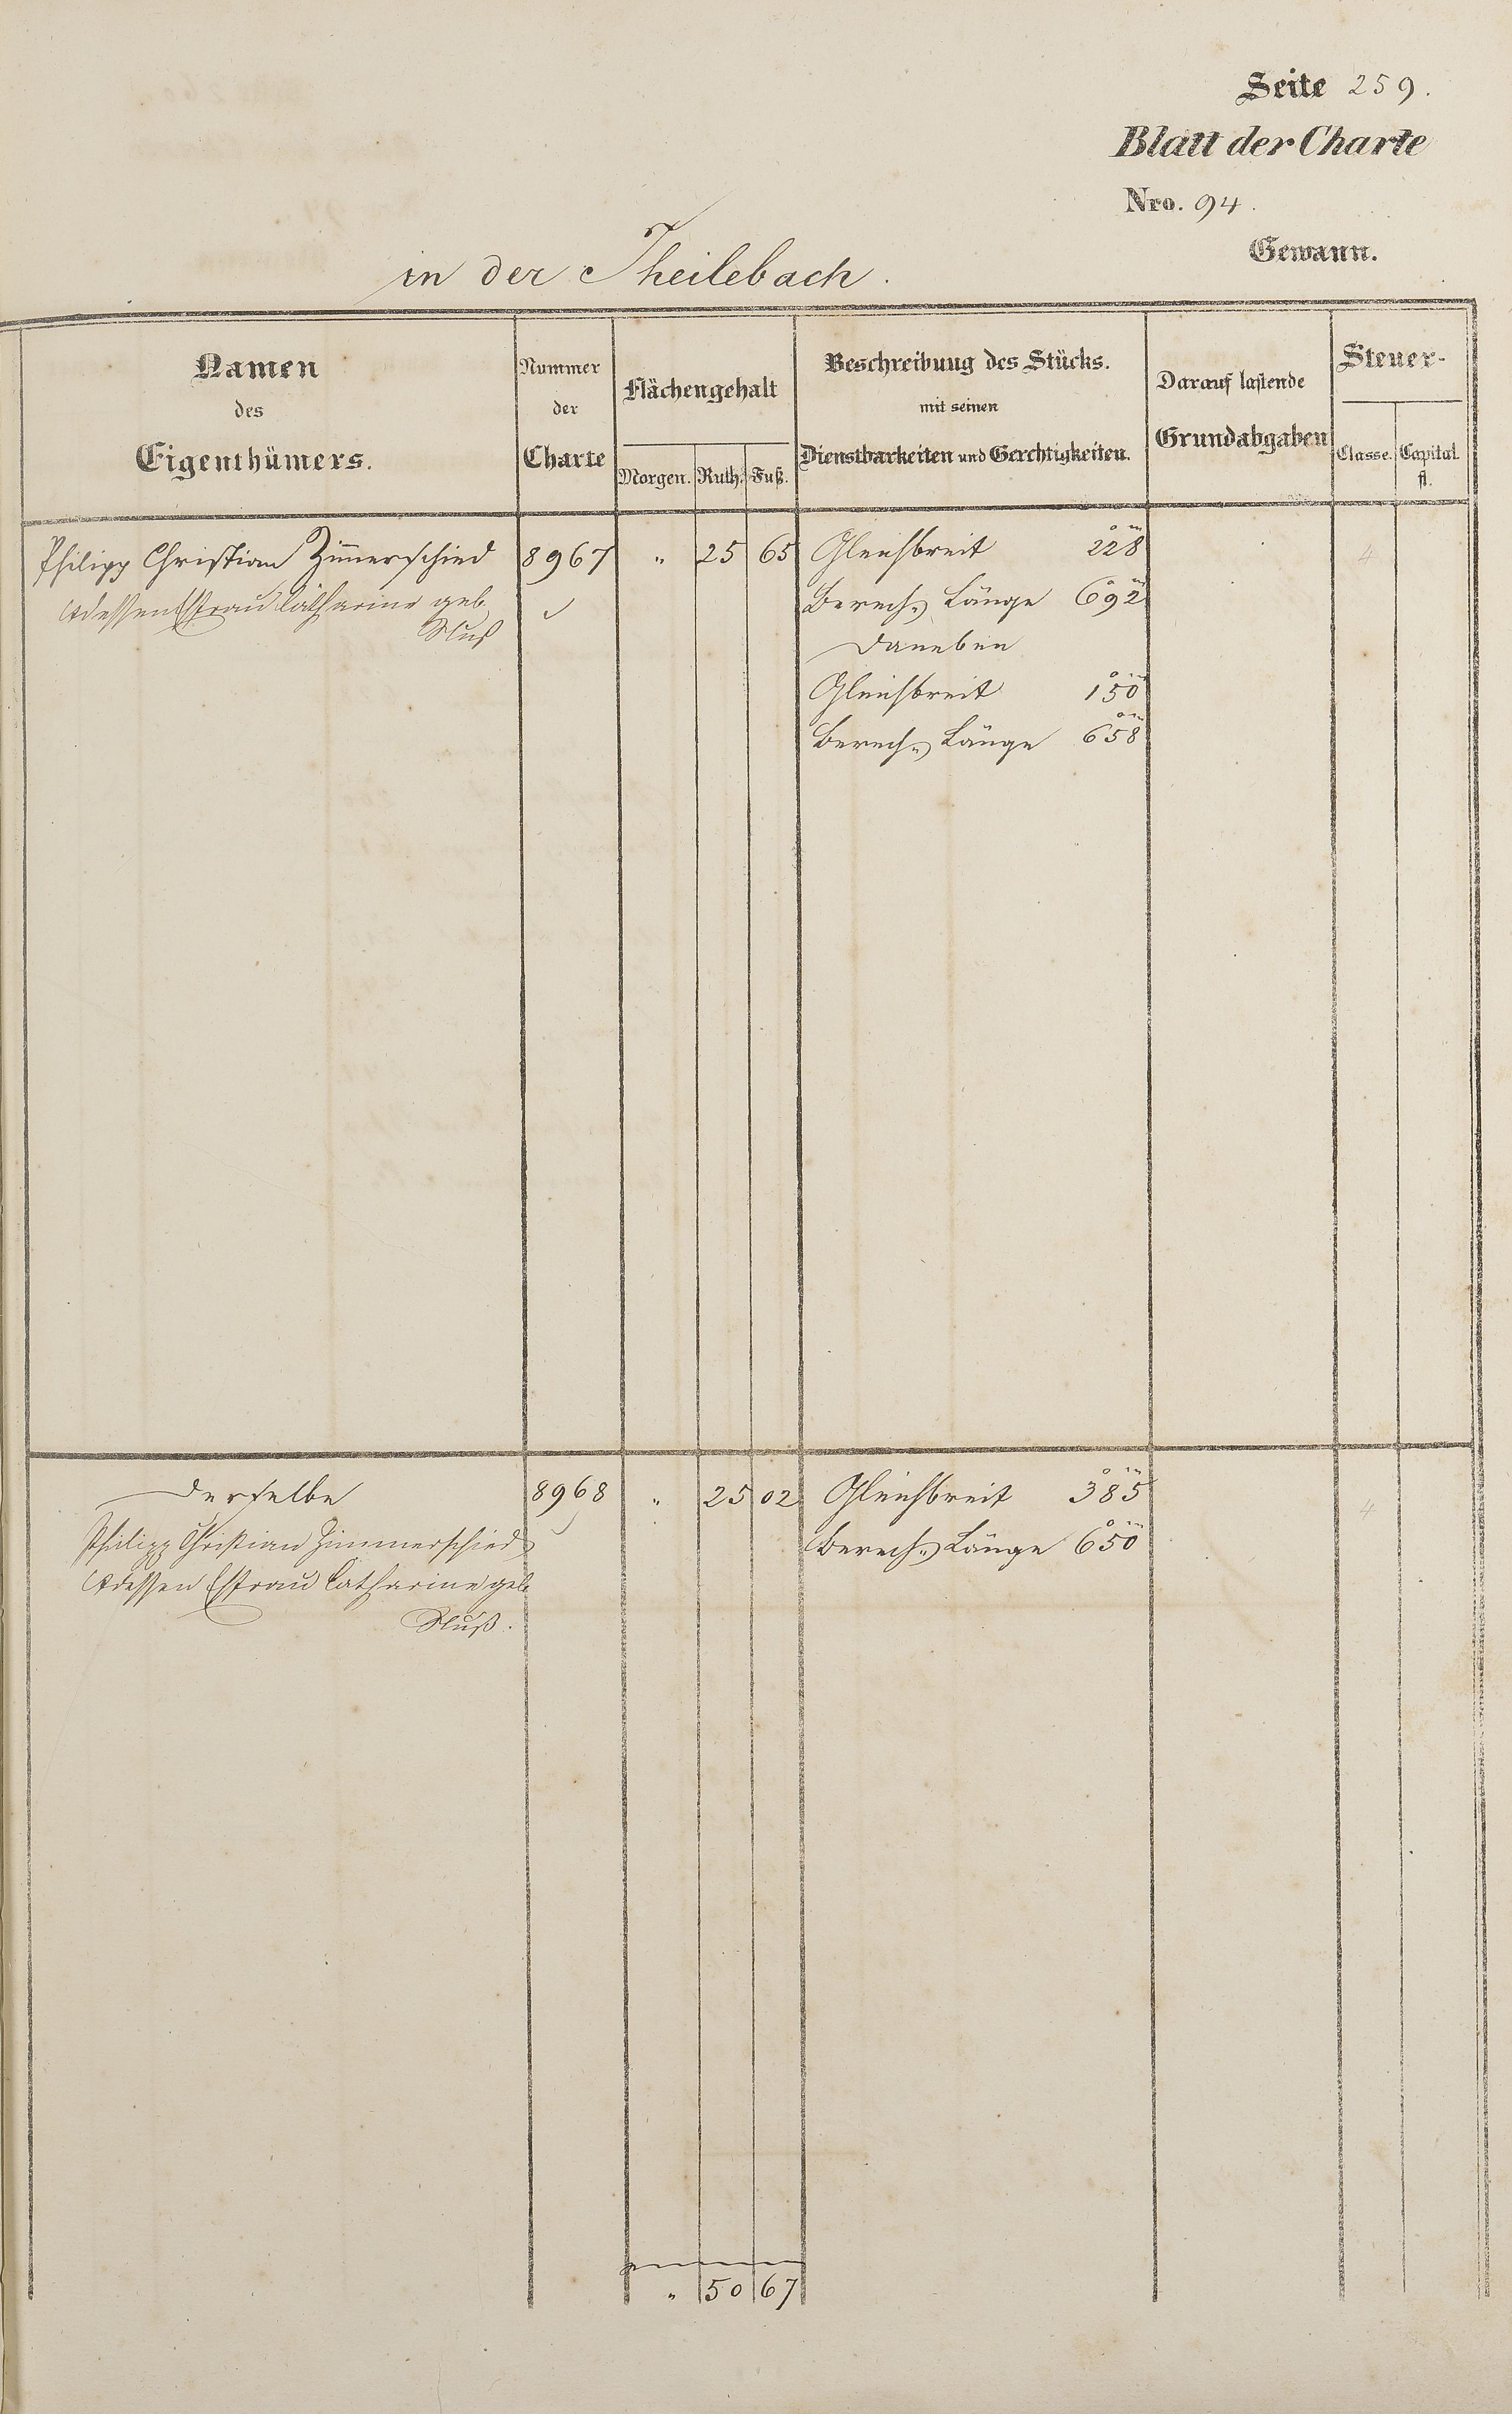 Seite 259.
Blatt der Charte
Nro. 94.
Gewann.
in der Theilebach.
Namen
des
Eigenthümers.
Nummer
der
Charte
Flächengehalt
Morgen. Ruth. Fuß.
Beschreibung des Stücks.
mit seinen
Dienstbarkeiten und Gerechtigkeiten.
Darauf lastende
Grundabgaben
Steuer-
Classe. Capital
fl.
Philipp Christian Zim̄erschied 8967 " 25 65 Gleichbreit 228 4
dessen Ehfrau Catharine geb. Berech. Länge 692
Nuß
Daneben
Gleichbreit 150
Berech. Länge 658
Derselbe 8968 " 25 02 Gleichbreit 385 4
Philipp Christian Zimmerschied Berech. Länge 650
dessen Ehfrau Catharine geb.
Nuß.
" 50 67